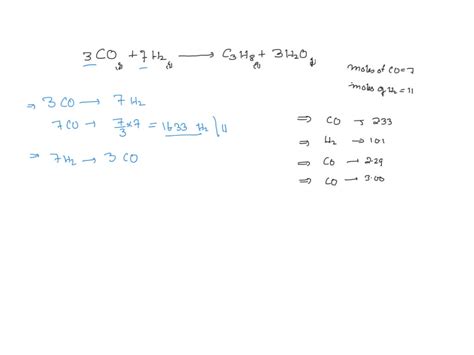 3CO(g) + 7H₂(g) ⟶ C₃H₈(g) + 3H₂O(g)
moles of CO = 7
moles of H₂ = 11
⇒ 3CO ⟶ 7H₂
7CO → 7/3 × 7 = 1633 H₂ | 11
⇒ 7H₂ → 3CO
⇒ CO → 233
⇒ H₂ → 10.1
⇒ CO → 2.29
⇒ CO → 3.00